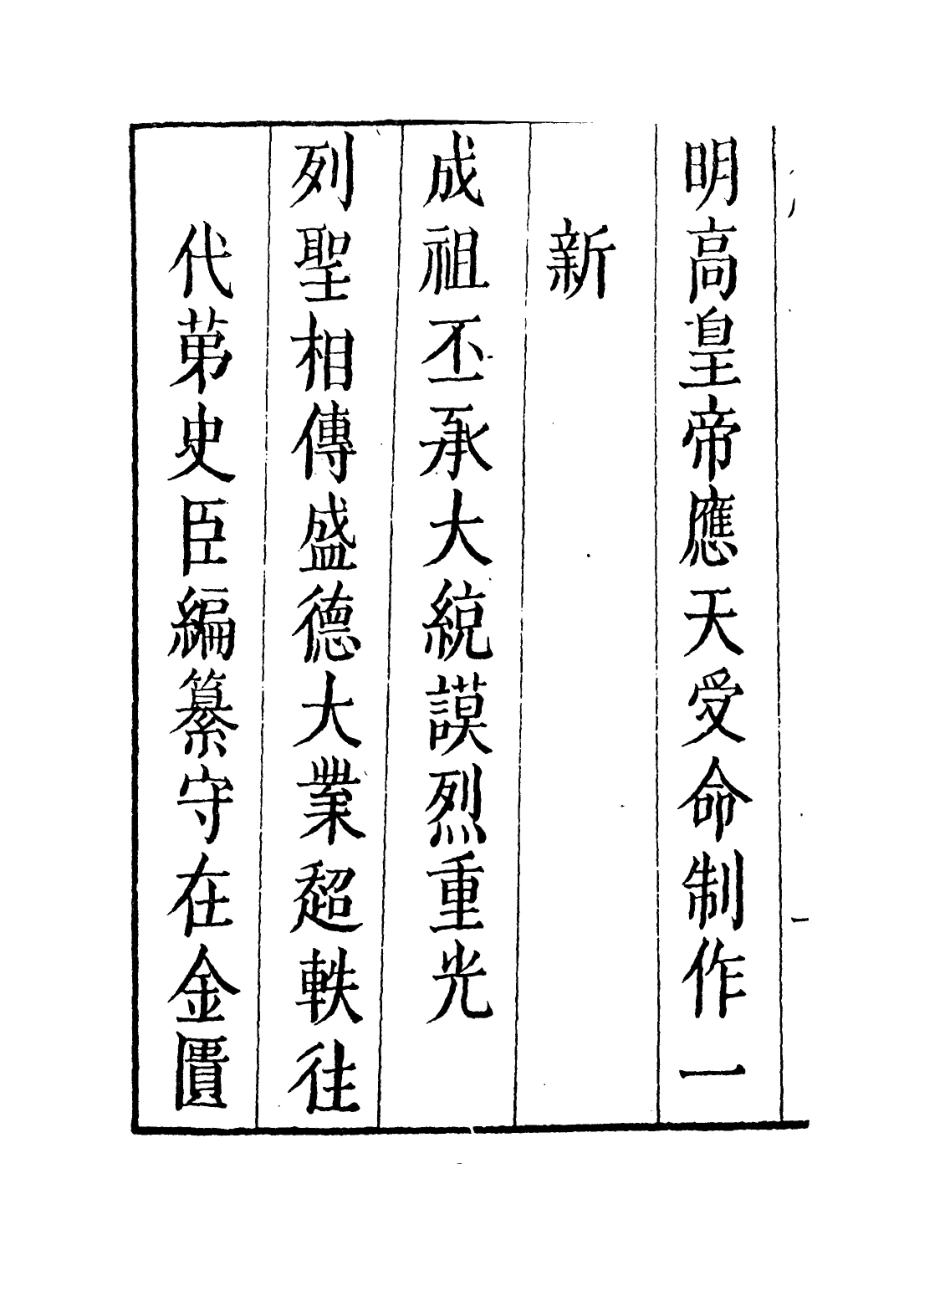 明高皇帝應天受命制作一
新
成祖丕承大統謨烈重光
列聖相傳盛德大業超軼往
代苐史臣編纂守在金匱